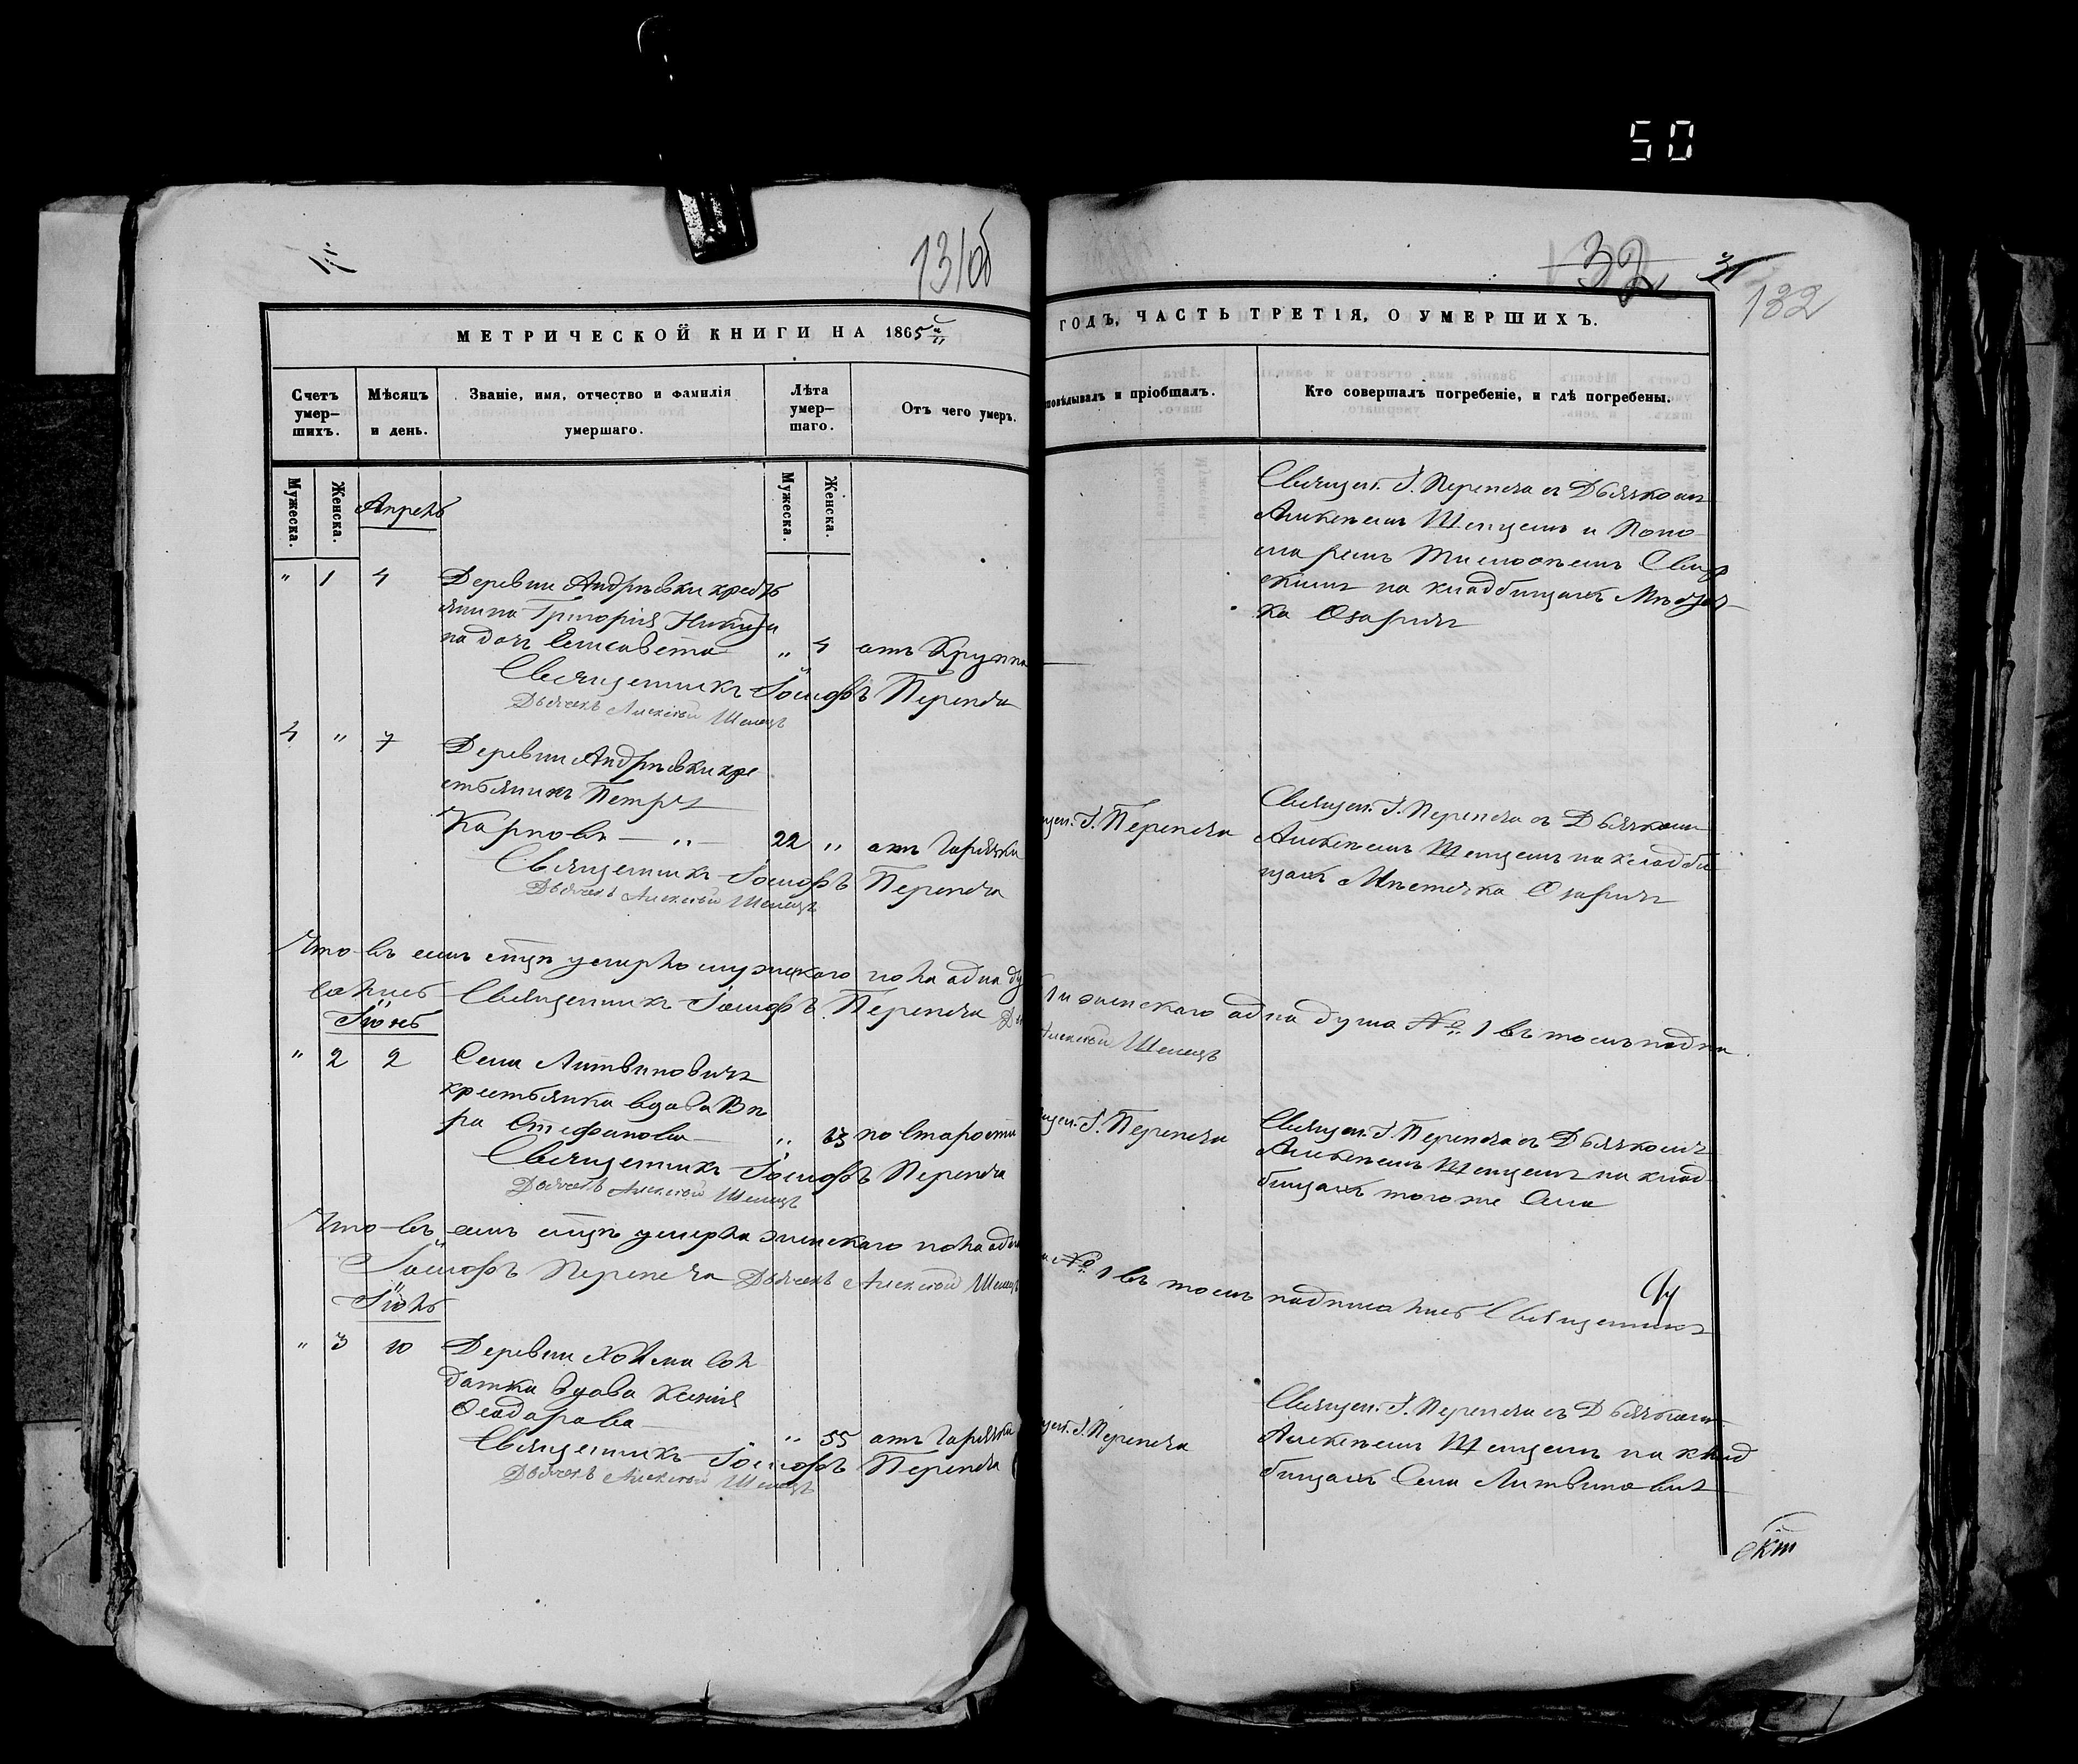 50
131об
132
31
132
МЕТРИЧЕСКОЙ КНИГИ НА 1865й
ГОДЪ, ЧАСТЬ ТРЕТІЯ, О УМЕРШИХЪ.
Счетъ умер-
шихъ.
Мѣсяцъ
и день.
Званіе, имя, отчество и фамилія
умершаго.
Лѣта
умер-
шаго.
Отъ чего умеръ.
исповѣдывалъ и пріобщалъ.
Кто совершалъ погребеніе, и гдѣ погребены.
Мужеска.
Женска.
Мужеска.
Женска.
Апрель
" 1 4 Деревни Андрѣевки кресть
янина Григорія Никити
на дочь Елисавета " 4 отъ Круппа
Священникъ Іосифъ Перепеча
Дьячекъ Алексѣй Шепецъ
Священ. І. Перепеча съ Дьячкомъ
Алексѣемъ Шепцемъ и Поно-
маремъ Тимофеемъ
на кладбищахъ Мѣстеч-
ка Озаричъ
4 " 7 Деревни Андрѣевки кре
стьянинъ Петръ
Карповъ — " — 22 " отъ Горячки
Священникъ Іосифъ Перепеча
Дьячекъ Алексѣй Шепецъ
щен. І. Перепеча
Священ. І. Перепеча съ Дьячкомъ
Алексѣемъ Шепцемъ на кладби
щахъ Мѣстечка Озаричъ
Что въ семъ мцѣ умерло мужескаго пола одна ду
ша и женскаго одна душа № 1 въ томъ подпи
сались Священникъ Іосифъ Перепеча
Алексѣй Шепецъ
Іюнь
" 2 2 Села Литвиновичъ
крестьянка вдова Вѣ
ра Стефанова — " 63 по старости
Священникъ Іосифъ Перепеча
Дьячекъ Алексѣй Шепецъ
щен. І. Перепеча
Священ. І. Перепеча съ Дьячкомъ
Алексѣемъ Шепцемъ на клад
бищахъ того же Села
Что въ семъ мцѣ умерла женскаго пола одна
№ 1 въ томъ подписались Священникъ
Іосифъ Перепеча Дьячекъ Алексѣй Шепецъ
Іюль
" 3 10 Деревни Холма сол
датка вдова Ксенія
Ѳеодорова — " 55 отъ Горячки
Священникъ Іосифъ Перепеча
Дьячекъ Алексѣй Шепецъ
щен. І. Перепеча
Священ. І. Перепеча съ Дьячкомъ
Алексѣемъ Шепцемъ на клад
бищахъ Села Литвиновичъ